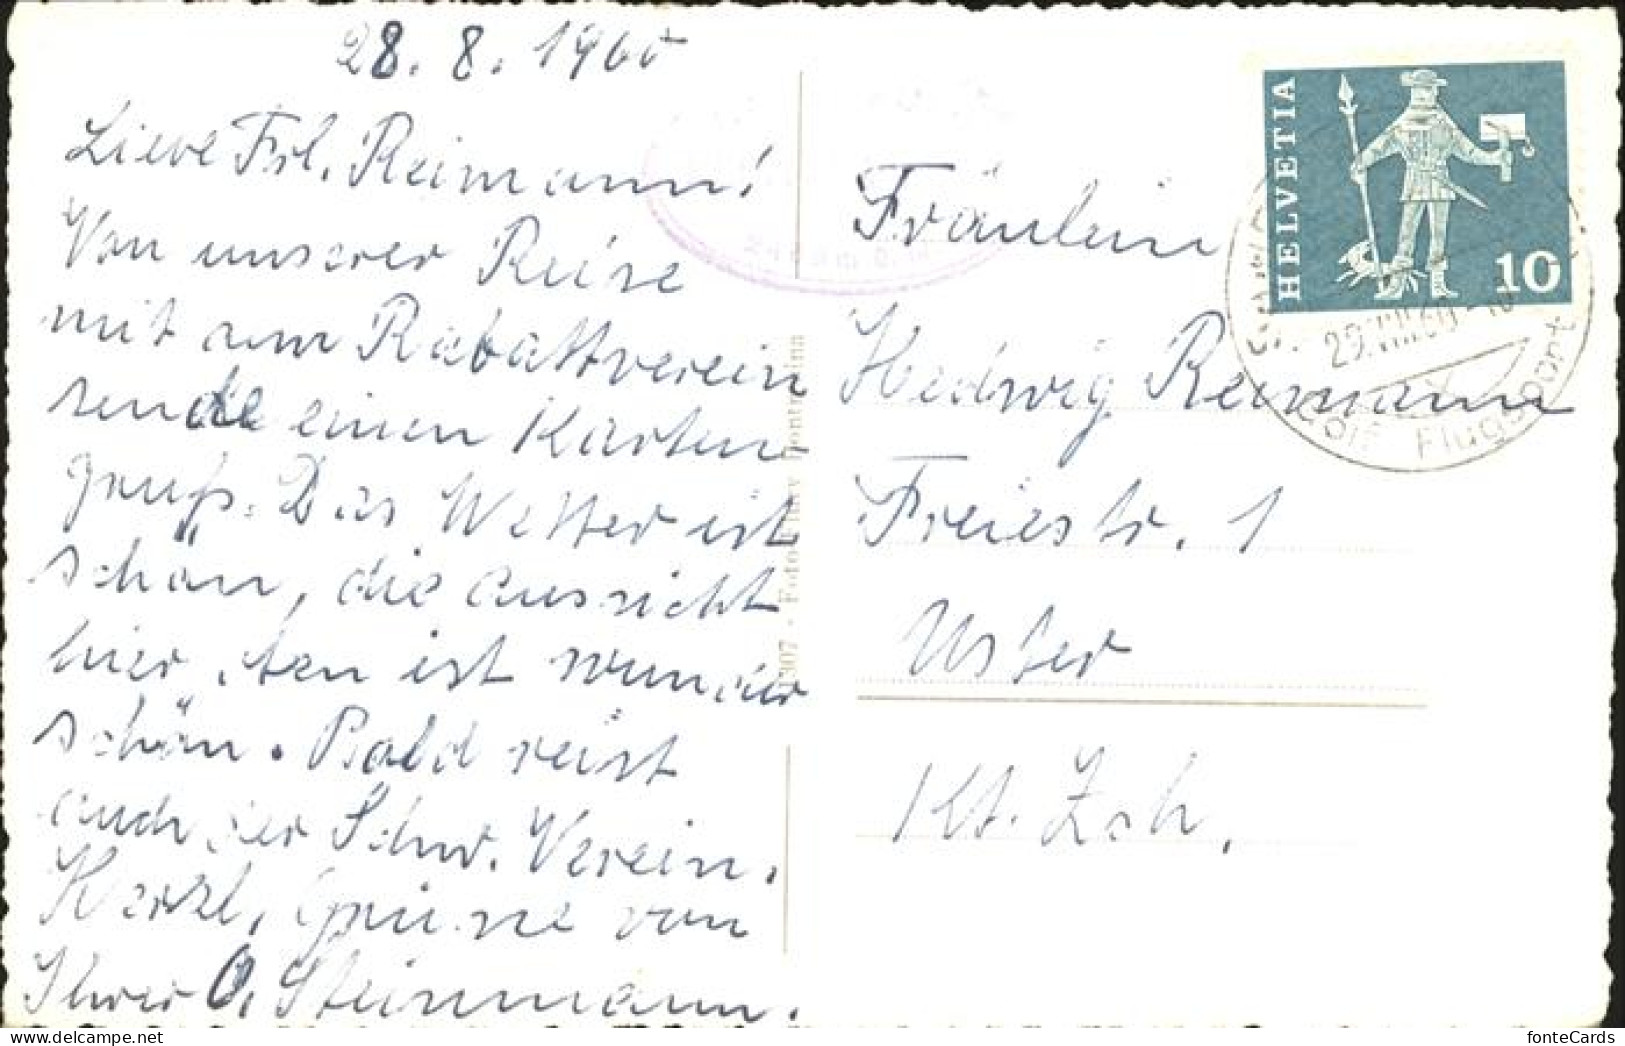 28. 8. 1960
Lieve Frl. Reimann!
Von unserer Reise
mit am Rabattverein
sende einen Karten
gruß. Das Wetter ist
schön, die Aussicht
hier oben ist wunder
schön. Bald reist
auch der Schw. Verein.
Herzl. Grüsse von
Ihrer O. Steinmann.
HELVETIA
10
29.VIII.60
Flugsport
Fräulein
Hedwig Reimann
Freiestr. 1
Uster
Kt. Zch.
307 - Foto
fonteCards